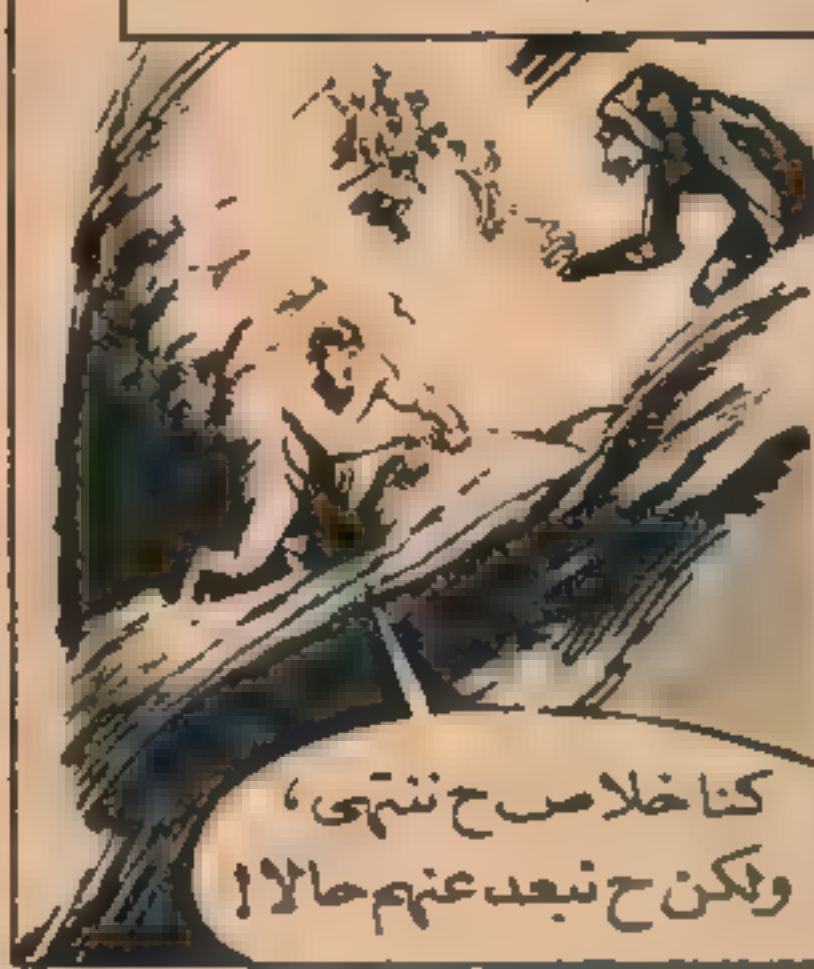 كنا خلاص ح ننتهى،
ولكن ح نبعد عنهم حالا!